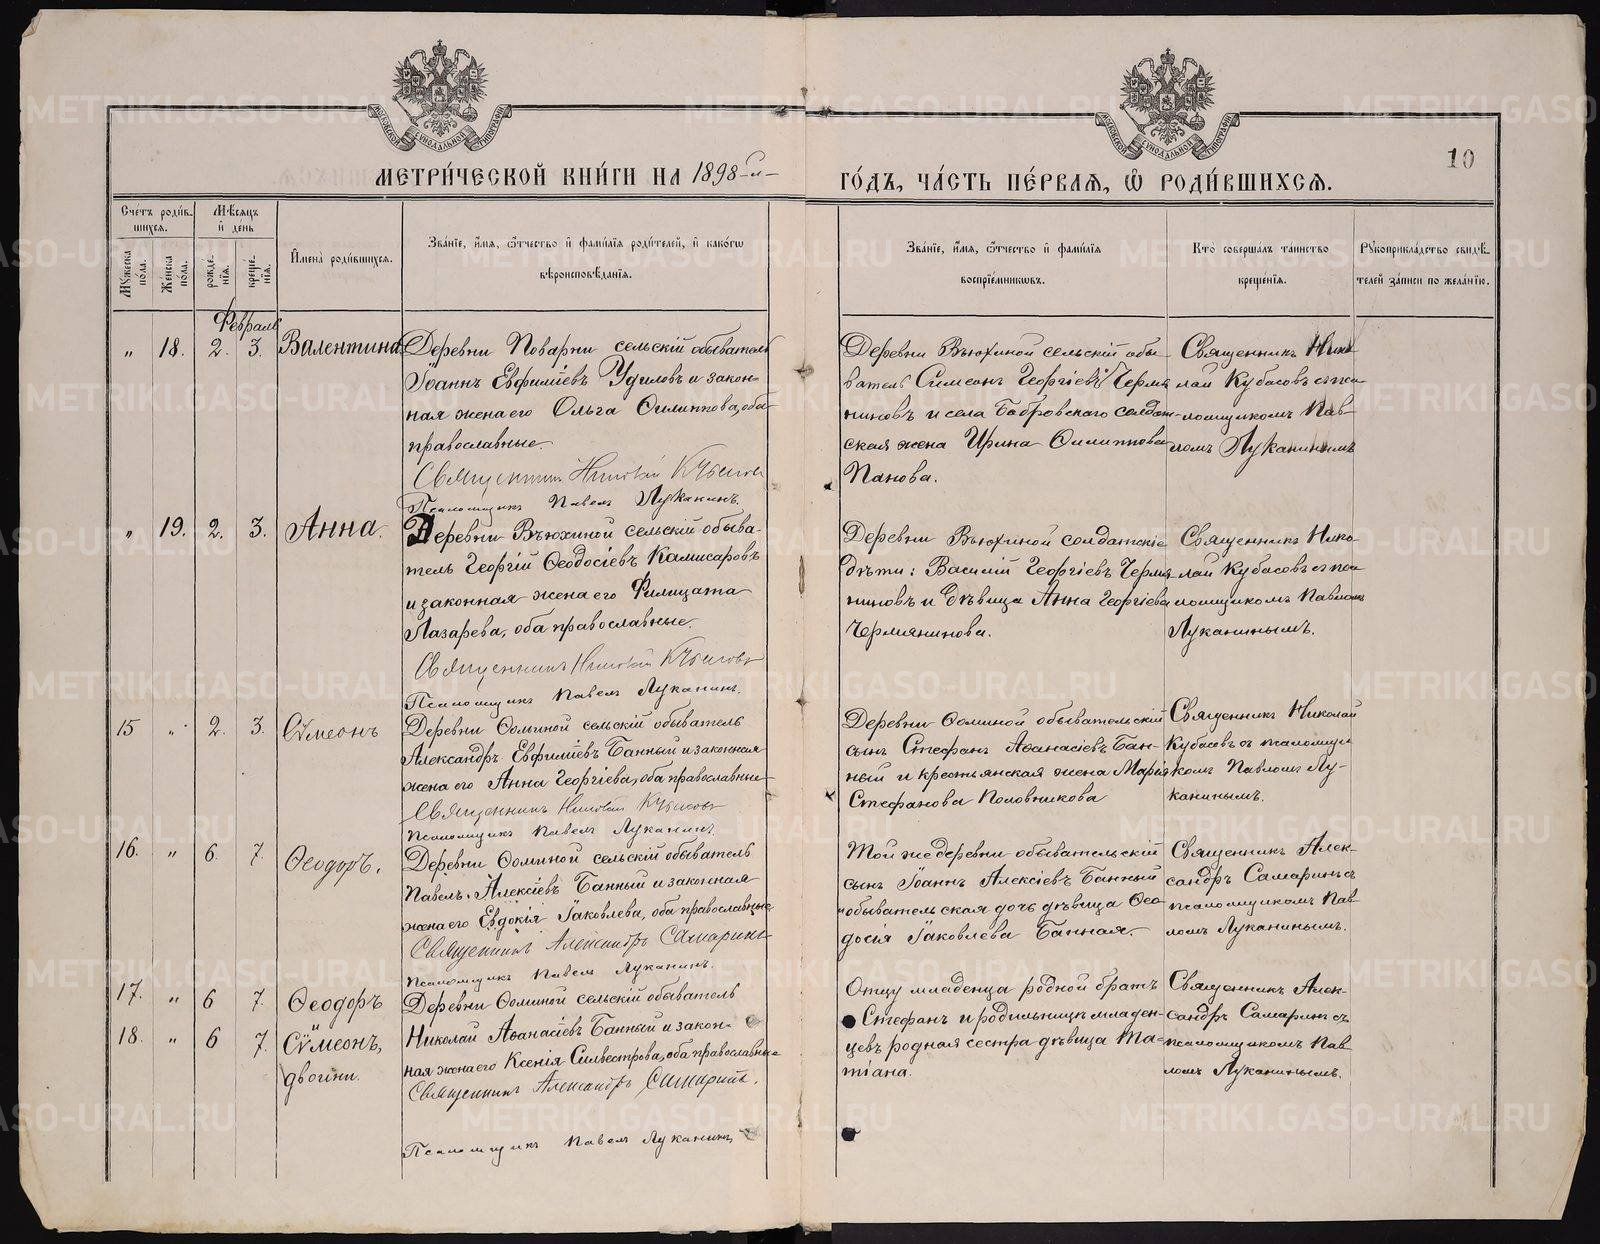 МЕТРИ́ЧЕСКОЙ КНИ́ГИ НА 1898-й
ГО́ДЪ, ЧА́СТЬ ПЕ́РВАЯ, Ѿ РОДИ́ВШИХСЯ.
10
Сче́тъ роди́в-
шихся.
Мѣ́сяцъ
и де́нь
Мꙋ́жеска
по́ла.
Же́нска
по́ла.
рожде-
нїя.
креще-
нїя.
Имена̀ роди́вшихся.
Зва́нїе, и́мя, ѻ́тчество и фами́лїя роди́телей, и како́гѡ
вѣроисповѣ́данїя.
Зва́нїе, и́мя, ѻ́тчество и фами́лїя
воспрїе́мникѡвъ.
Кто̀ соверша́лъ та́инство
креще́нїя.
Рꙋкоприкла́дство свидѣ́-
телей за́писи по жела́нїю.
Февраль
" 18. 2. 3. Валентина
Деревни Поварни сельскій обыватель
Іоаннъ Евфиміевъ Удиловъ и закон-
ная жена его Ольга Филиппова, оба
православные.
Священникъ Николай Кубасовъ
Псаломщикъ Павелъ Луканинъ.
Деревни Вьюхиной сельскій обы-
ватель Симеонъ Георгіевъ Чермя
ниновъ и села Бобровскаго солдат-
ская жена Ирина Филиппова
Панова.
Священникъ Нико
лай Кубасовъ съ пса-
ломщикомъ Пав-
ломъ Луканинымъ
" 19. 2. 3. Анна.
Деревни Вьюхиной сельскій обыва-
тель Георгій Ѳеодосіевъ Камисаровъ
и законная жена его Филицата
Лазарева, оба православные.
Священникъ Николай Кубасовъ
Псаломщикъ Павелъ Луканинъ.
Деревни Вьюхиной солдатскіе
дѣти: Василій Георгіевъ Чермя
ниновъ и дѣвица Анна Георгіева
Чермянинова.
Священникъ Нико-
лай Кубасовъ съ пса
ломщикомъ Павломъ
Луканинымъ.
15 " 2. 3. Сѵмеонъ
Деревни Ѳоминой сельскій обыватель
Александръ Евфиміевъ Банный и законная
жена его Анна Георгіева, оба православные
Священникъ Николай Кубасовъ
Псаломщикъ Павелъ Луканинъ.
Деревни Ѳоминой обывательскій
сынъ Стефанъ Аѳанасіевъ Бан-
ный и крестьянская жена Марія
Стефанова Половникова
Священникъ Николай
Кубасовъ съ псаломщи
комъ Павломъ Лу-
канинымъ.
16. " 6. 7. Ѳеодоръ.
Деревни Ѳоминой сельскій обыватель
Павелъ Алексіевъ Банный и законная
жена его Евдокія Іаковлева, оба православные
Священникъ Александръ Самаринъ
Псаломщикъ Павелъ Луканинъ.
Той же деревни обывательскій
сынъ Іоаннъ Алексіевъ Банный
обывательская дочь дѣвица Ѳео
досія Іаковлева Банная.
Священникъ Алек-
сандръ Самаринъ съ
псаломщикомъ Пав
ломъ Луканинымъ.
17. " 6 7. Ѳеодоръ
18. " 6 7. Сѵмеонъ,
двойни.
Деревни Ѳоминой сельскій обыватель
Николай Аѳанасіевъ Банный и закон-
ная жена его Ксенія Силвестрова, оба православные
Священникъ Александръ Самаринъ.
Псаломщикъ Павелъ Луканинъ
Отцу младенца родной братъ
Стефанъ и родильницы младен-
цевъ родная сестра дѣвица Та-
тіана.
Священникъ Алек-
сандръ Самаринъ съ
псаломщикомъ Пав
ломъ Луканинымъ.
METRIKI.GASO-URAL.RU